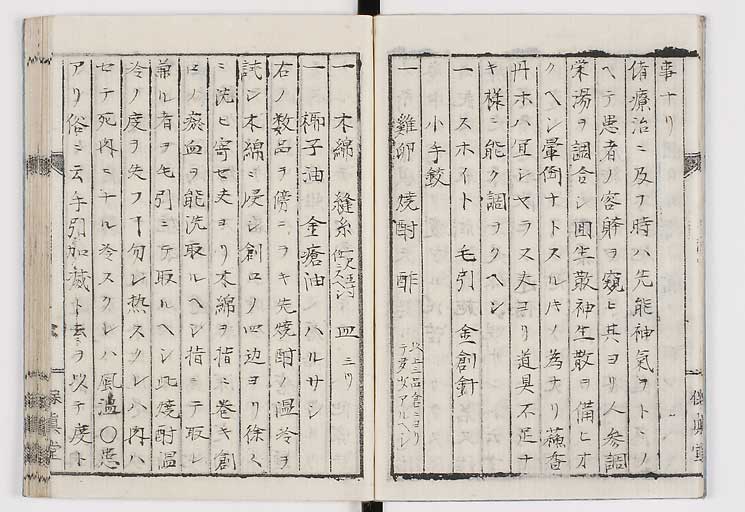 事ナリ
偖療治ニ及フ時ハ先能神氣ヲトヽノ
ヘテ患者ノ容躰ヲ窺ヒ其ヨリ人参調
栄湯ヲ調合シ回生散神生散ヲ備ヒオ
クヘシ暈倒ナトスルキノ為ナリ蘓香
丹ホハ宜シヤラス夫ヨリ道具不足ナ
キ様ニ能ク調ヲクヘシ
一 スホイト 毛引 金創針
小手鋏
一 雞卵 焼酎 酢
一 木綿 縫糸 皿 三ツ
一 椰子油 金瘡油 ハルサン
右ノ数品ヲ傍ニヲキ先焼酎ノ温冷ヲ
試シ木綿ニ浸シ創口ノ四边ヨリ徐々
ニ洗ヒ寄セ夫ヨリ木綿ヲ指ニ巻キ創
口ノ瘀血ヲ能洗取ルヘシ指ニテ取レ
兼ル者ヲ毛引ニテ取ルヘシ此焼酎温
冷ノ度ヲ失フヿ勿レ热スクレハ肉ハ
セテ死肉ニナル冷スクレハ風温〇患
アリ俗ニ云手引加减ト云ヲ以テ度ト
保真堂